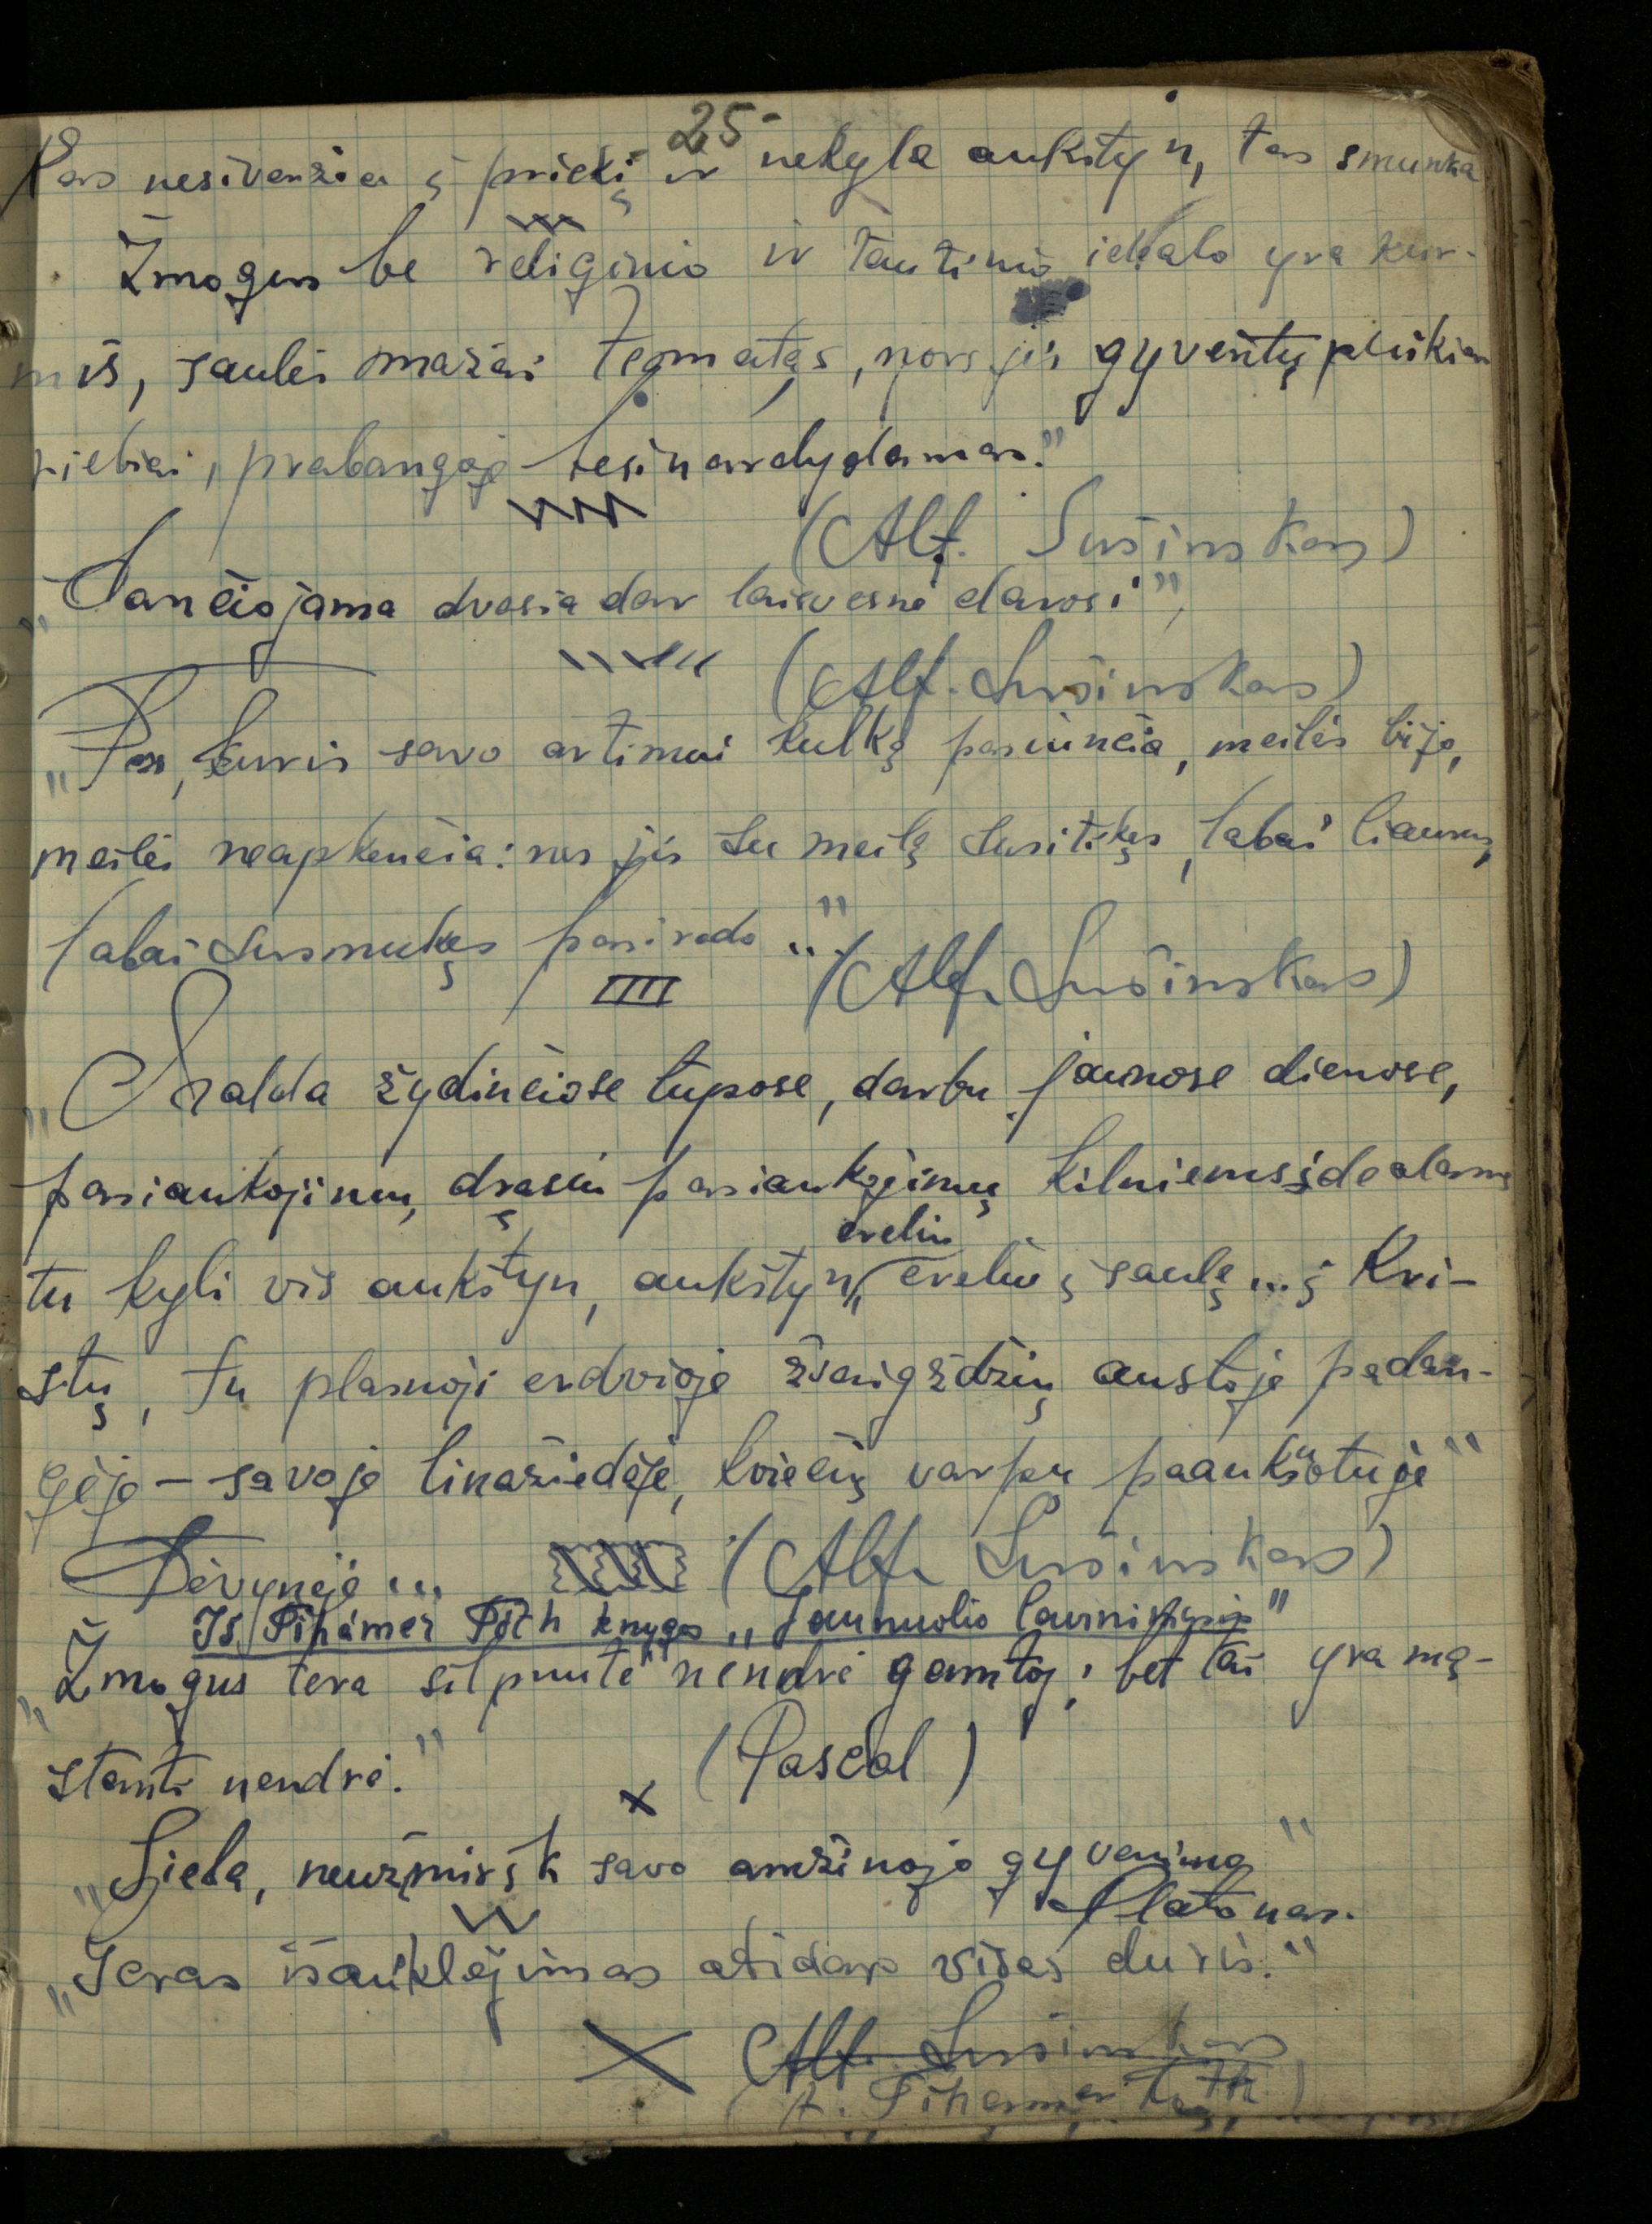 25
Kas nesiveržia į priekį ir nekyla aukštyn, tas smunka
Žmogus be religinio ir tautinio idealo yra kur-
mis, saulės mažai tematąs, nors jis gyventų puikiau
piebiai, prabangoje besinardydamas."
(Alf. Sušinskas)
"Pančiojama dvasia dar laisvesnė darosi",
(Alf. Sušinskas)
"Tas, kuris savo artimui kulką pasiunčia, meilės bijo,
meilės neapkenčia: nes jis su meile susitikęs, labai liaunus,
labai susmukęs pasirodo..."
(Alf. Sušinskas)
"Malda žydinčiose lūpose, darbu jaunose dienose,
pasiaukojimu, drąsiu pasiaukojimu kilniems idealams
erelių
tu kyli vis aukštyn, aukštyn, ereliu į saulę... į Kri-
stų, tu plasnoji erdvioje žvaigždžių austoje padan-
gėje – savoje linažiedėje, kviečių varpų paauksuotoje"
Tėvynėje...
(Alf. Sušinskas)
Iš Tihamer Tóth knygos "Jaunuolio
"Žmogus tėra silpnutė nendrė gamtoj; bet tai yra mą-
stanti nendrė."
(Pascal)
"Siela, neužmiršk savo amžinojo gyvenimo"
Platonas.
"Geras išauklėjimas atidaro visas duris."
(Alf. Sušinskas
(A. Tihamer Toth)